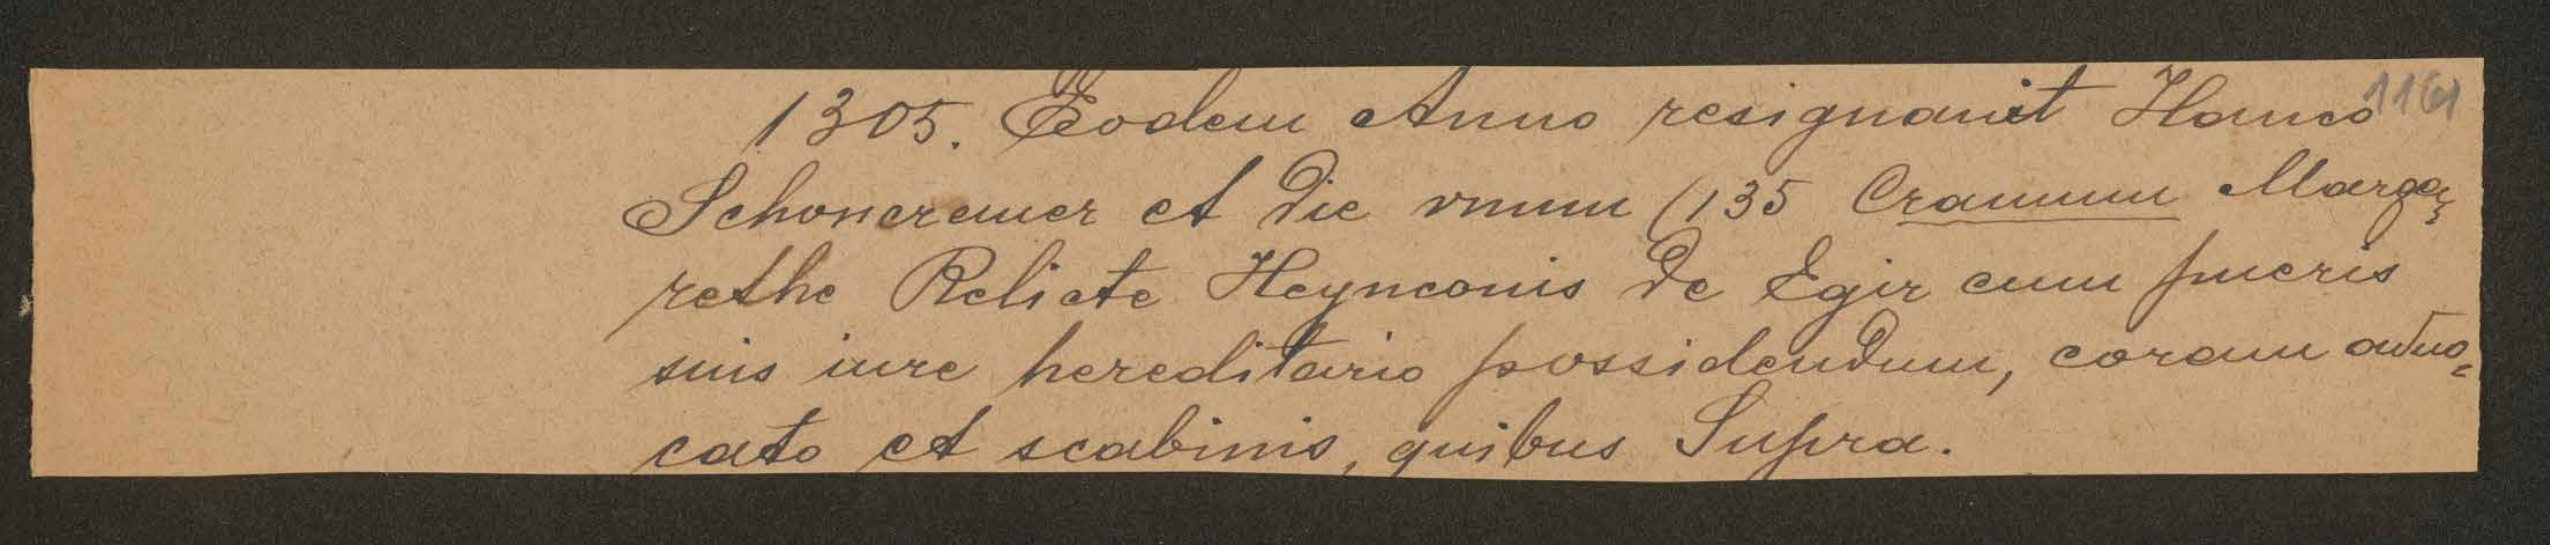 1305. Eodem Anno resignauit Hanco 1161
Schoncremer et die vnum (135 Cramum Marga,
rethe Relicte Heynconis de Egir cum pueris
suis iure hereditario possidendum, coram aduo=
cato et scabinis, quibus Supra.